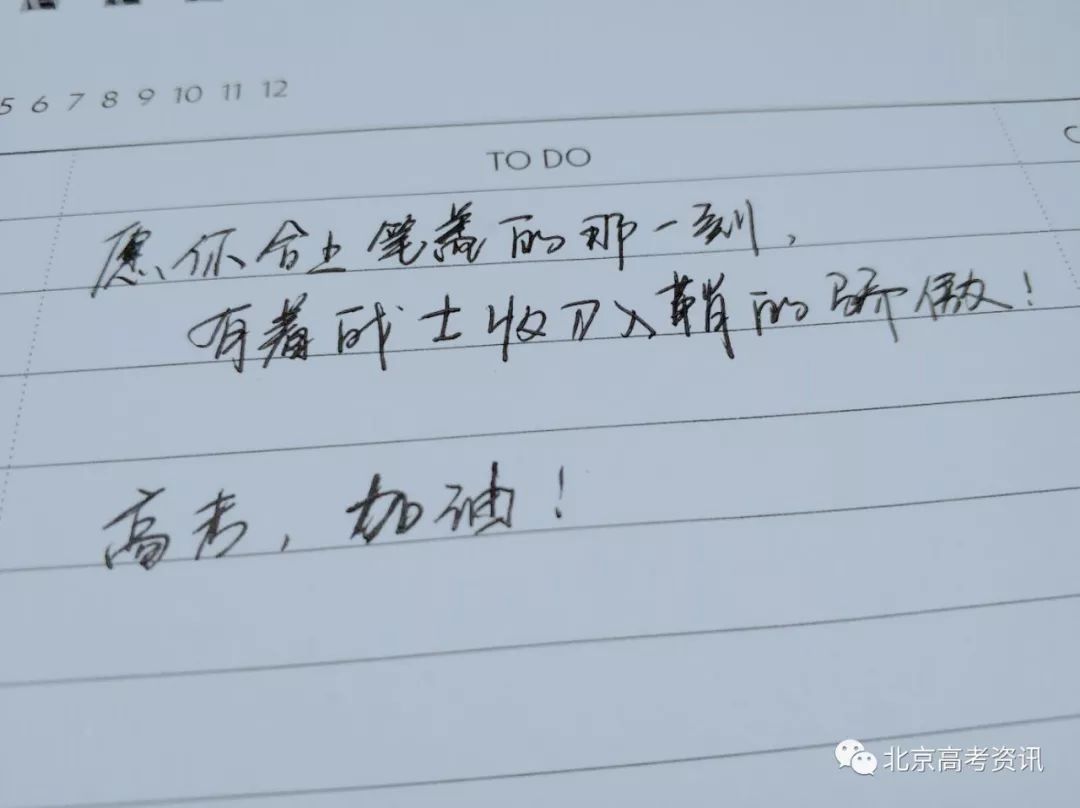 5 6 7 8 9 10 11 12
TO DO
愿你合上笔盖的那一刻,
有着战士收刀入鞘的骄傲!
高考,加油!
北京高考资讯